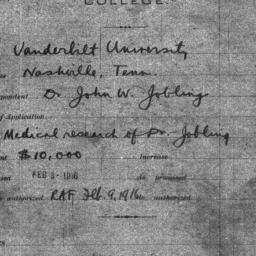 COLLEGE.
Vanderbilt University
Nashville, Tenn.
Dr. John W. Jobling
of Application
Medical research of Dr. Jobling
$10,000 Increase
FEB 8-1916 As proposed
authorized RAF Feb. 9, 1916 authorized